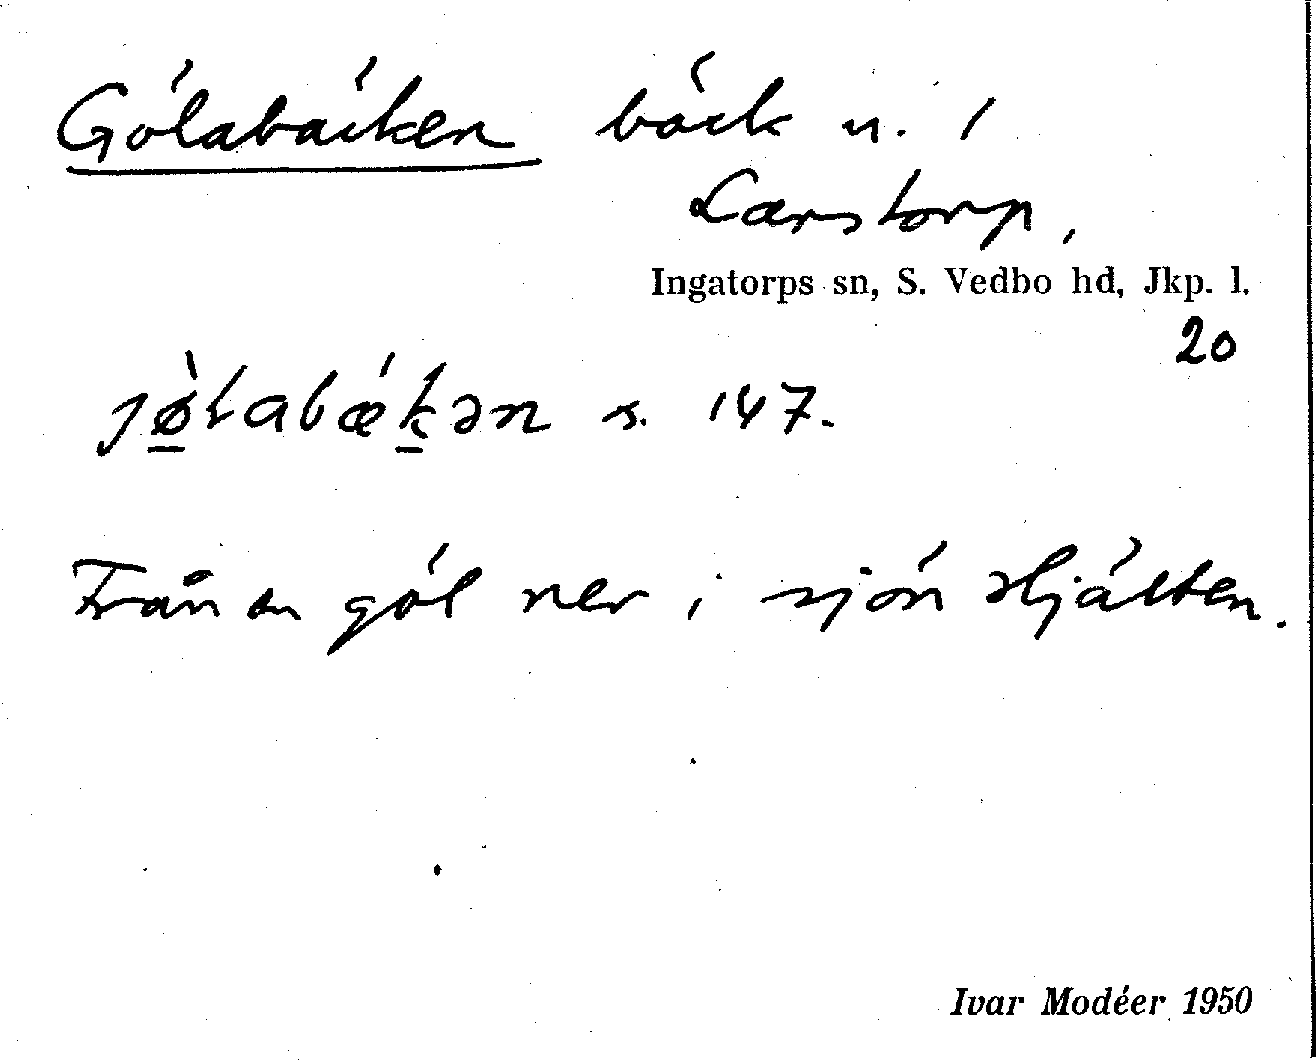 Gölabäcken bäck n. /
Larstorp,
Ingatorps sn, S. Vedbo hd, Jkp. l.
20
jø̀labǽkən s. 147.
Från en göl ner i sjön Hjälten.
Ivar Modéer 1950